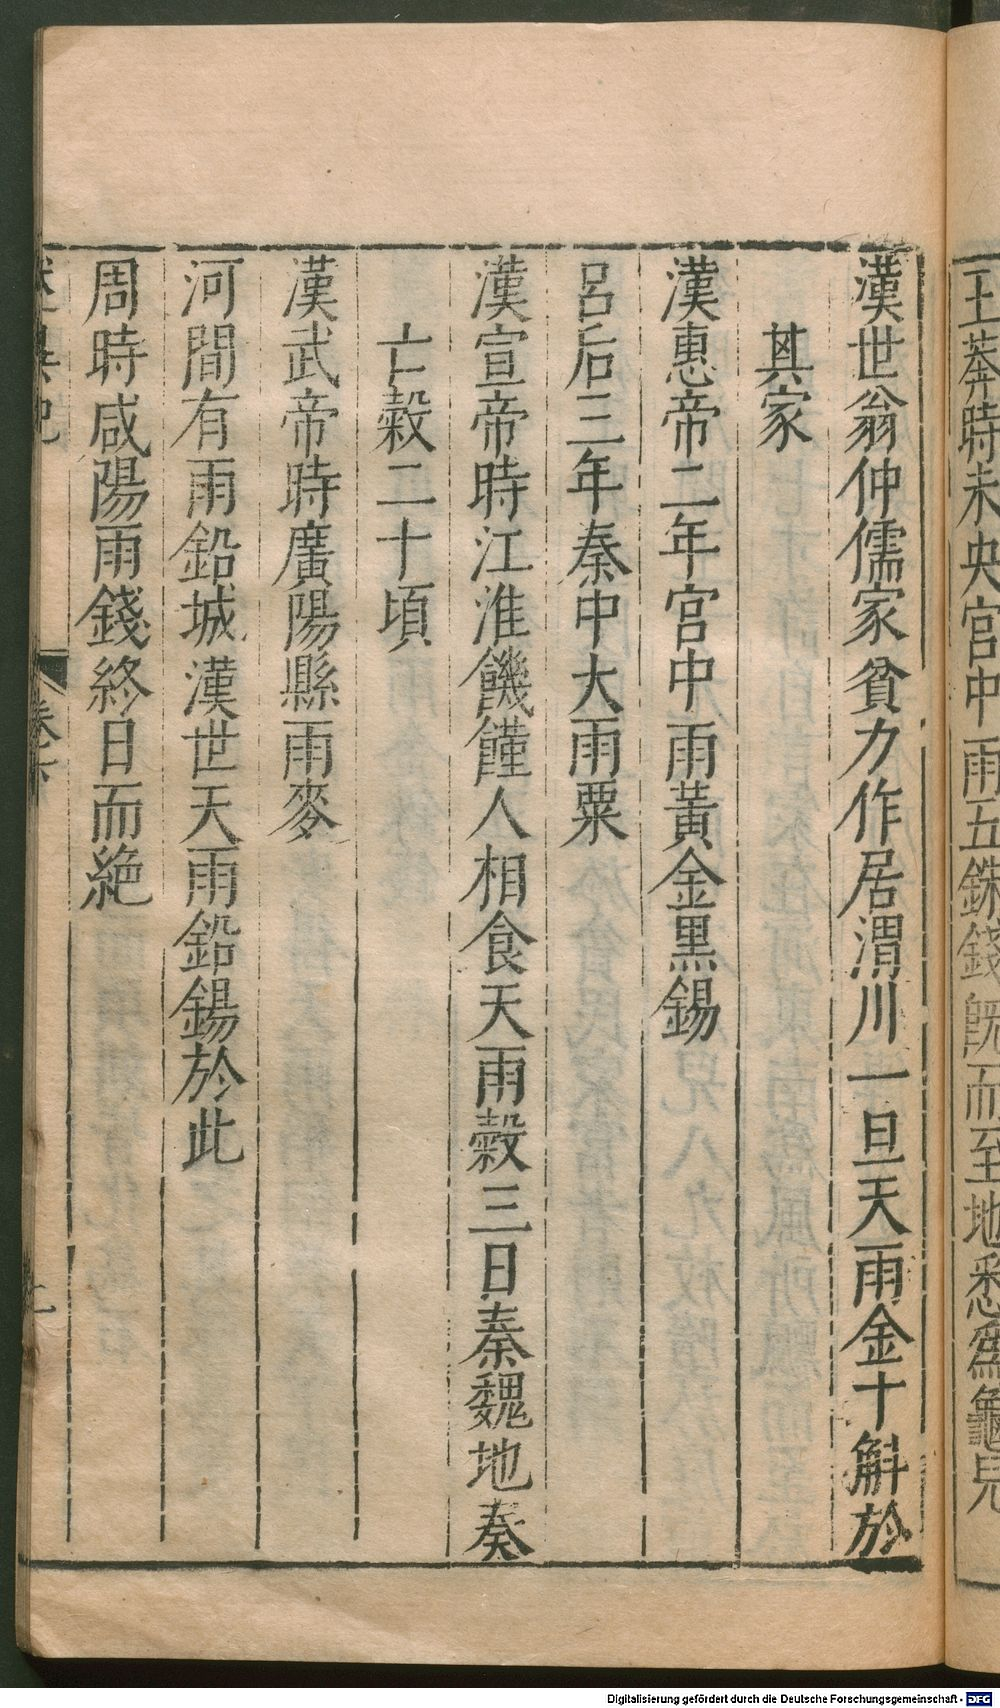 王莽時未央宮中雨五銖錢既而至地悉為龜兒
漢世翁仲儒家貧力作居渭川一旦天雨金十斛於
其家
漢惠帝二年宮中雨黃金黑錫
呂后三年秦中大雨粟
漢宣帝時江淮饑饉人相食天雨穀三日秦魏地奏
亡穀二十頃
漢武帝時廣陽縣雨麥
河間有雨鉛城漢世天雨鉛錫於此
周時咸陽雨錢終日而絶
Digitalisierung gefördert durch die Deutsche Forschungsgemeinschaft - DFG